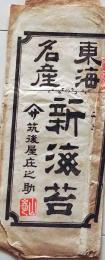 東海
名産
新海苔
筑後屋庄之助